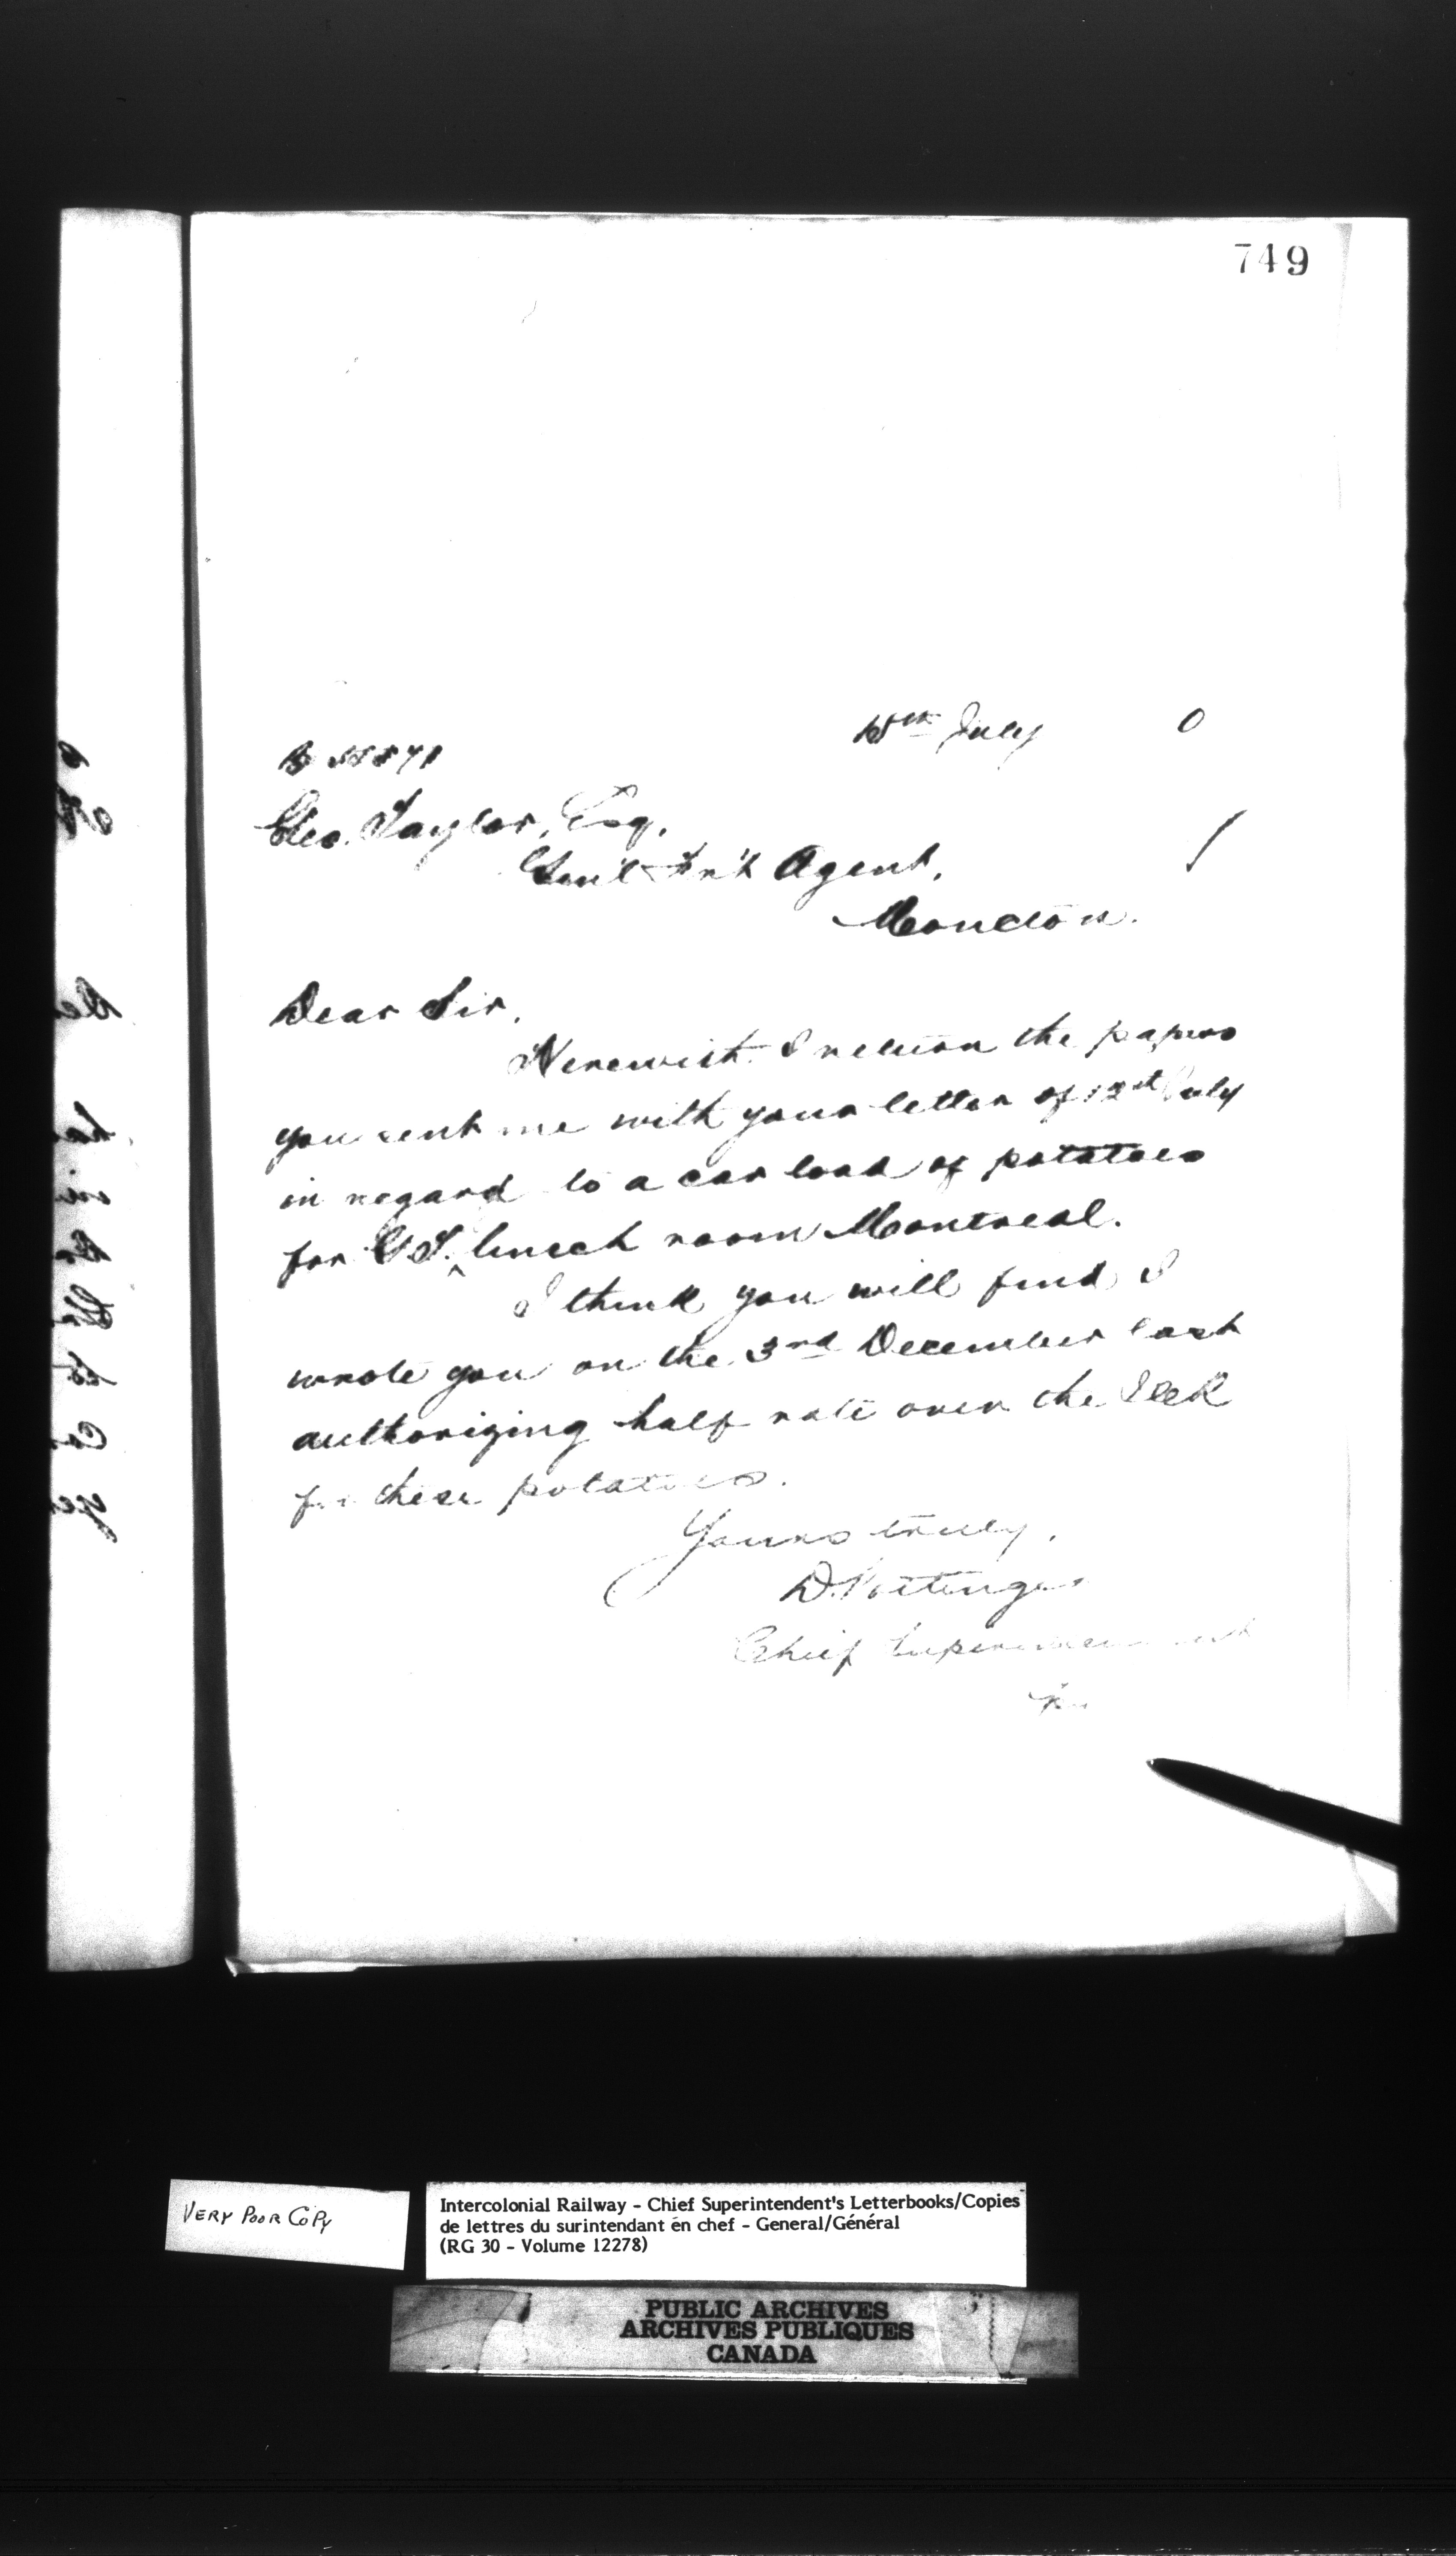 749
15th July 0
Geo. Taylor, Esq.
Gen'l Fr't Agent,
Moncton.
Dear Sir,
Herewith I return the papers
you sent me with your letter of 12th July
in regard to a car load of potatoes
for G.T. lunch room Montreal.
I think you will find I
wrote you on the 3rd December last
authorizing half rate over the ICR
for these potatoes.
Yours truly,
D. Pottinger
Chief Superintendent
VERY POOR COPY
Intercolonial Railway - Chief Superintendent's Letterbooks/Copies
de lettres du surintendant en chef - General/Général
(RG 30 - Volume 12278)
PUBLIC ARCHIVES
ARCHIVES PUBLIQUES
CANADA